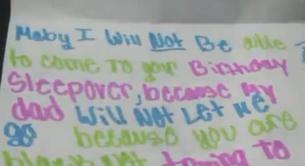 Maby I Will Not Be able
to come To your Birthday
Sleepover, because my
dad Will Not Let Me
go because you are
black not trying to